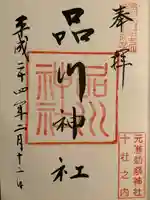 奉拝
品川神社
平成二十四年二月十二日
品川神社
元准勅祭神社
十社之内